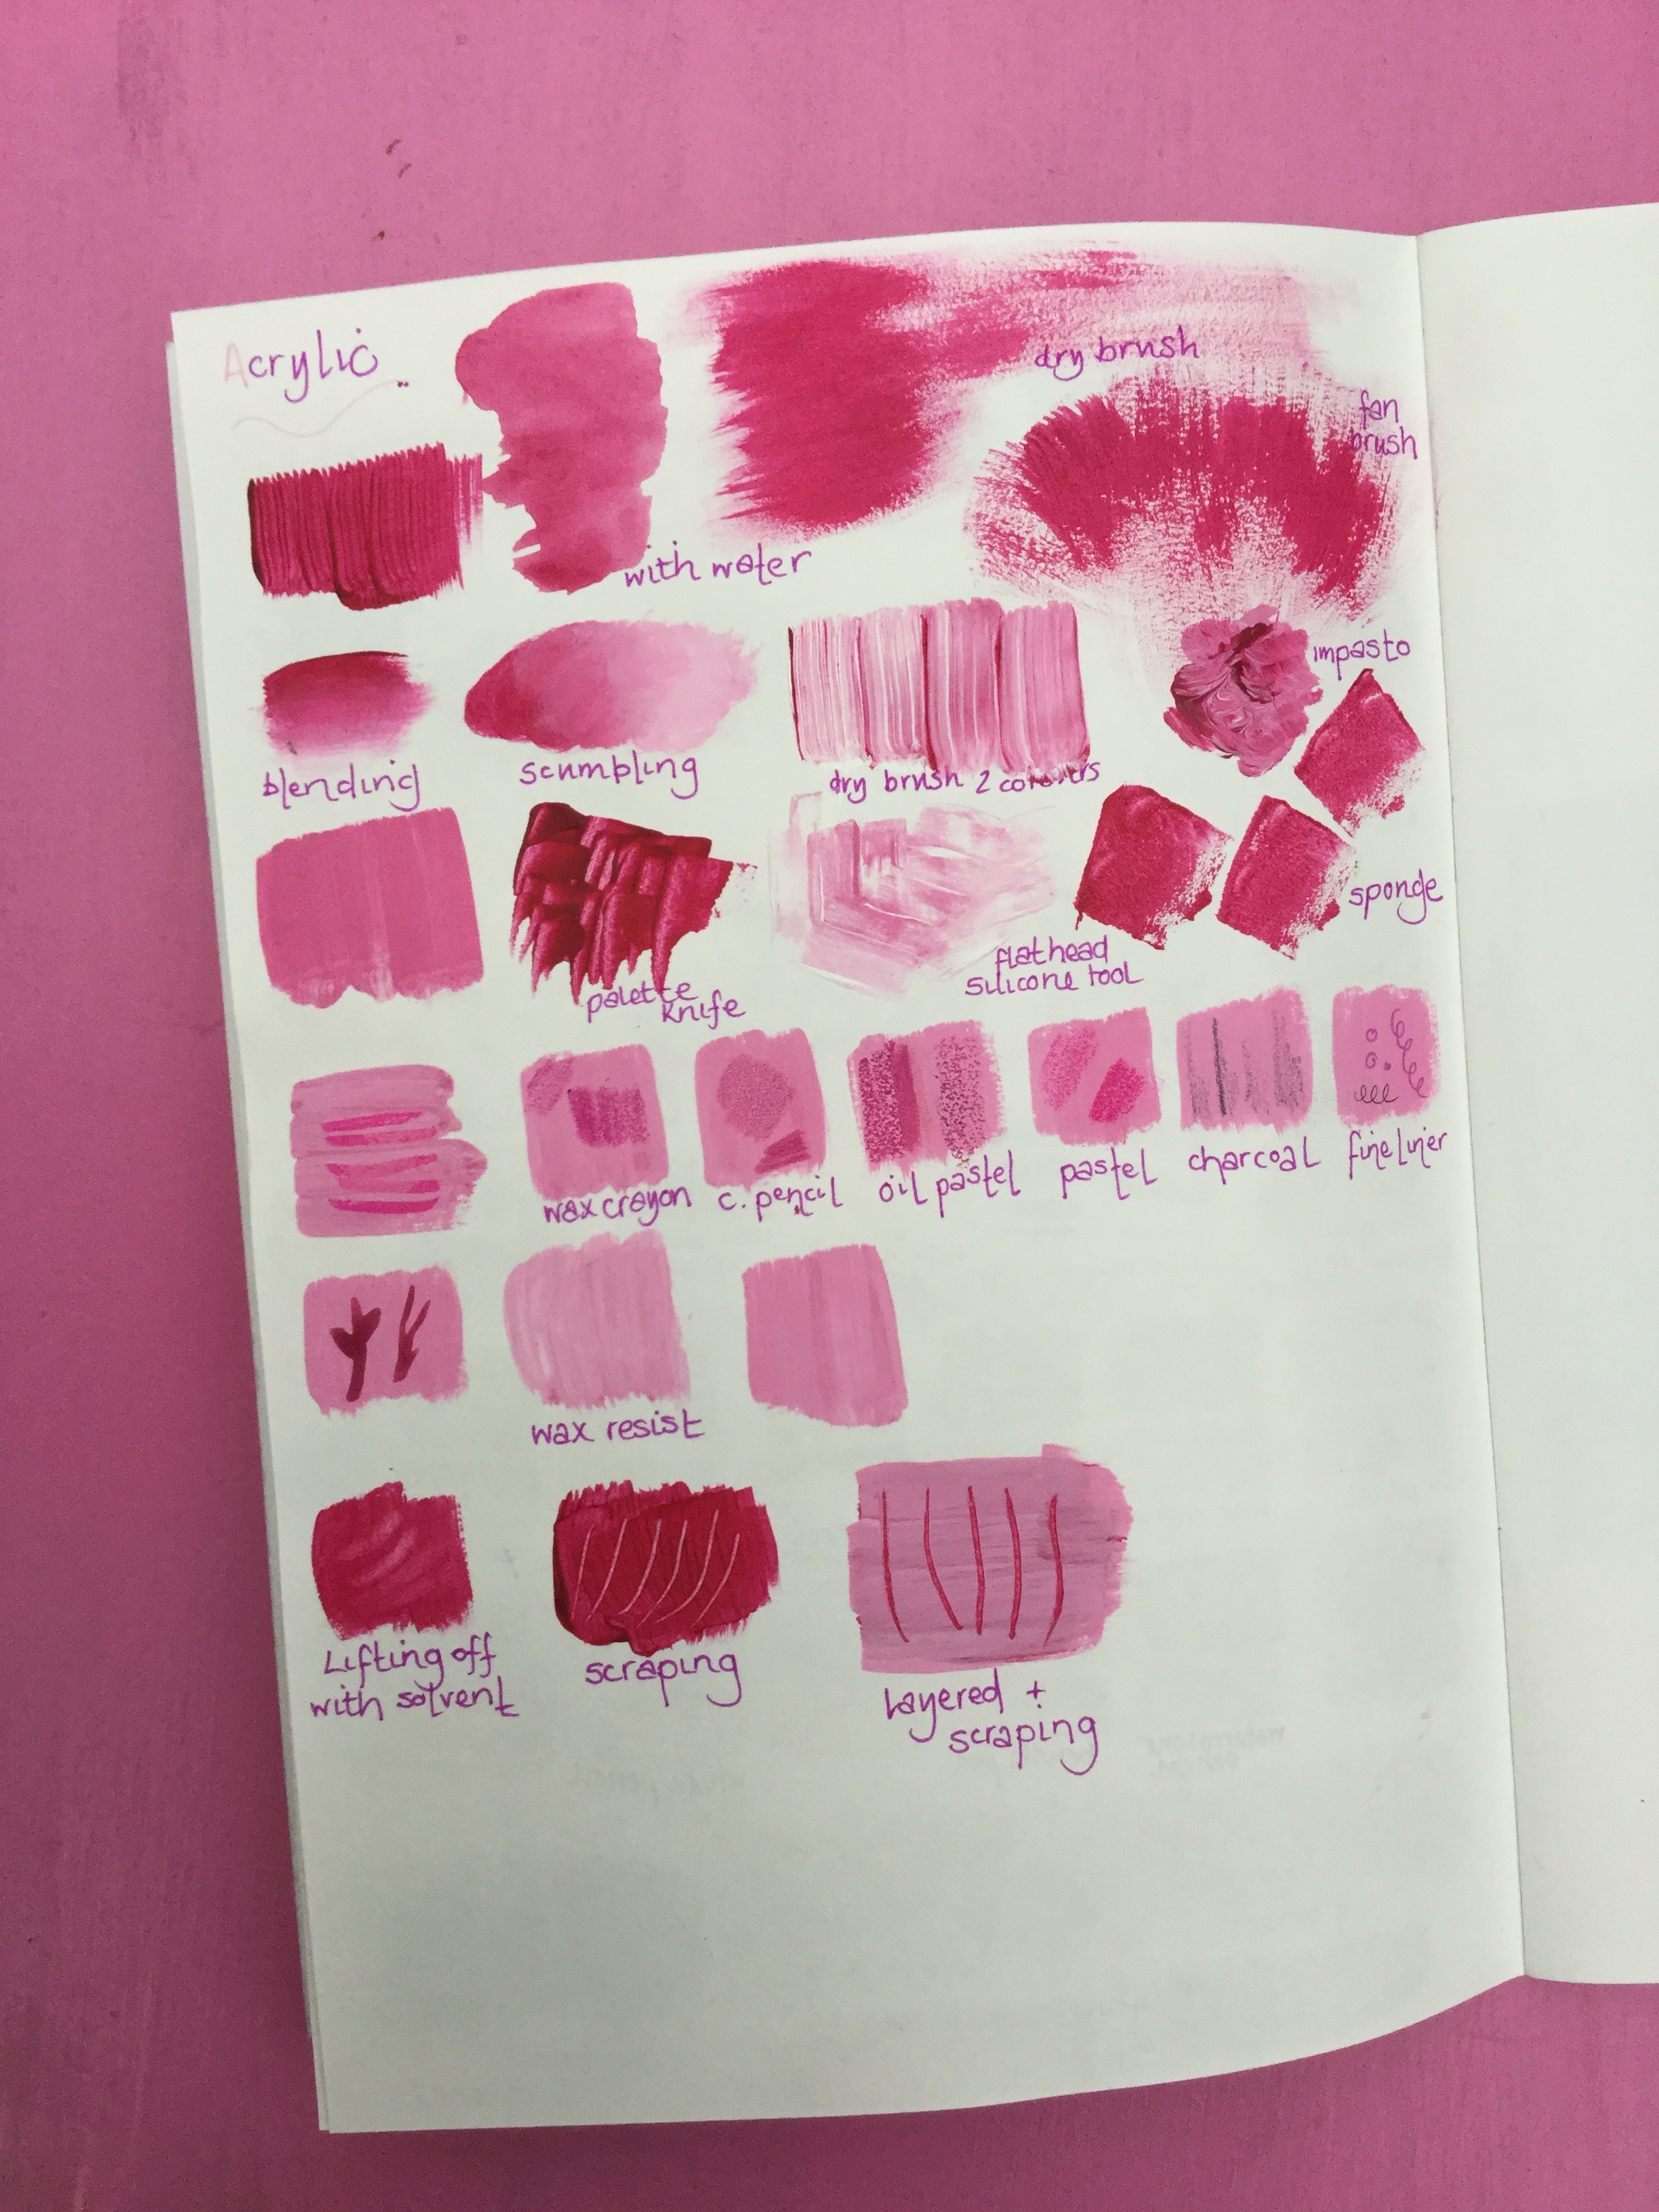 Acrylic
dry brush
fan
brush
with water
impasto
blending
scumbling
dry brush 2 colours
sponge
flathead
silicone tool
palette
knife
wax crayon
c. pencil
oil pastel
pastel
charcoal
fine liner
wax resist
Lifting off
with solvent
scraping
layered +
scraping